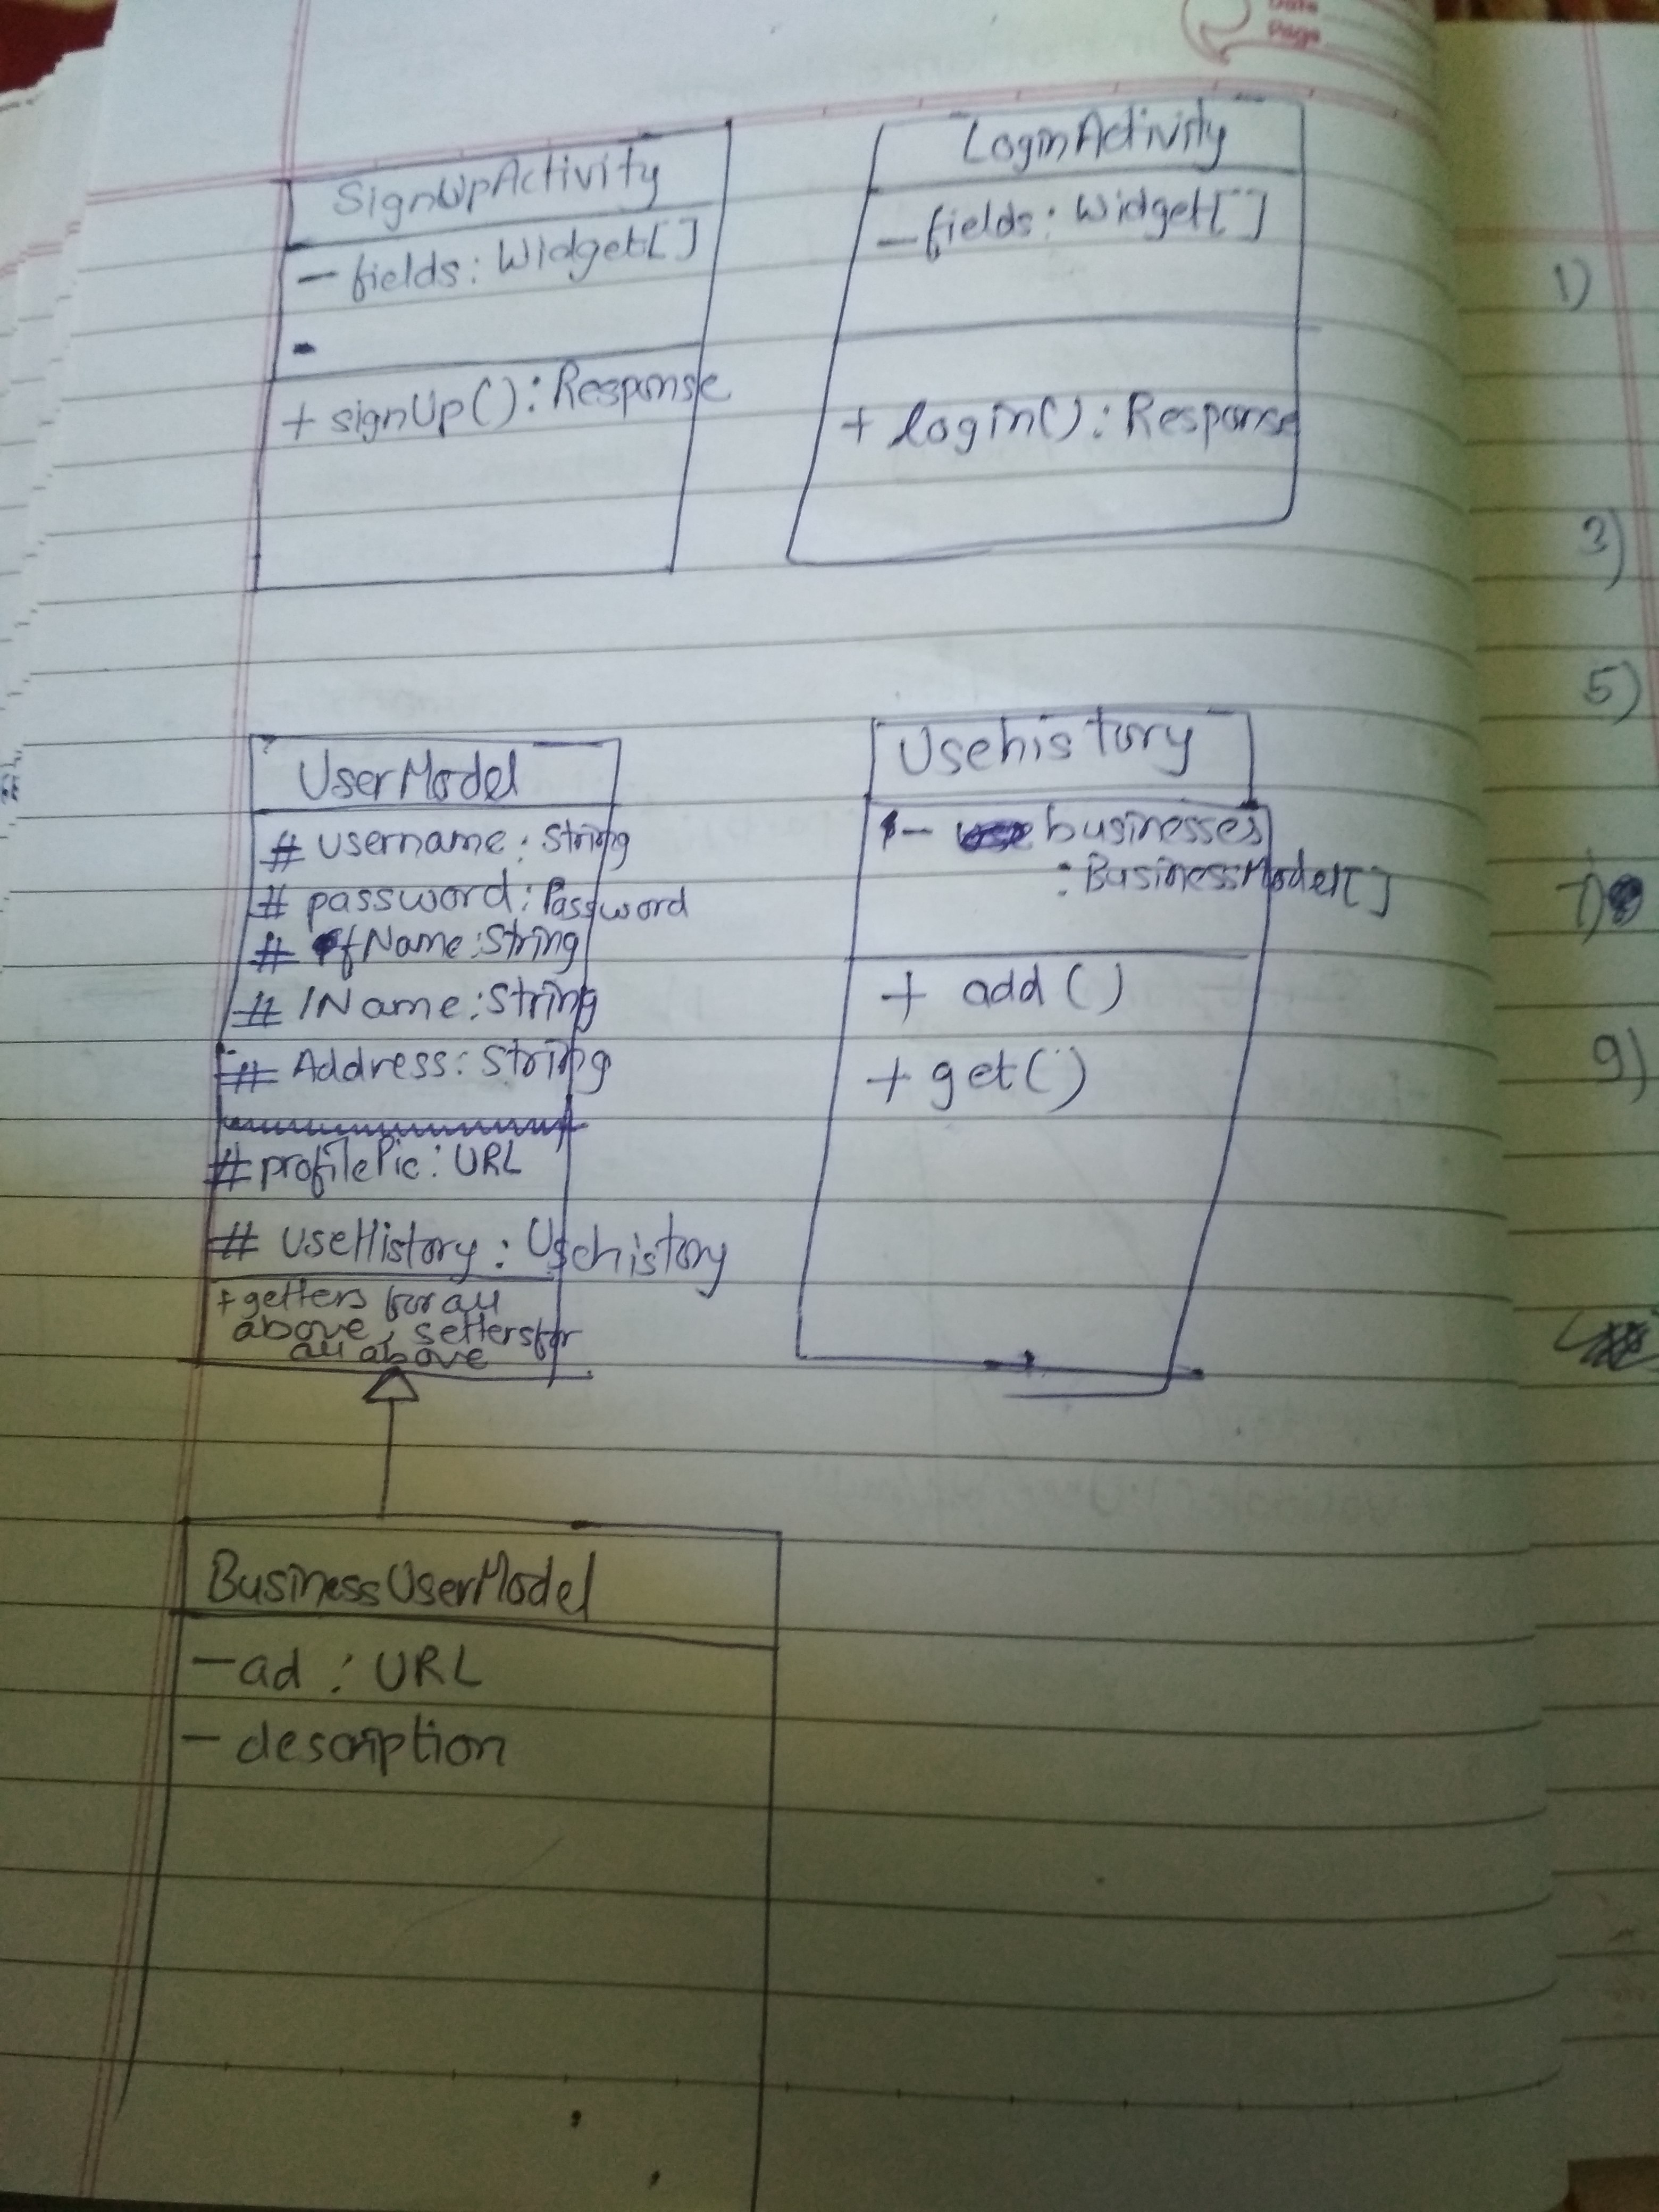 Date
Page
SignUpActivity
- fields: Widget[]
-
+ signUp(): Response
LoginActivity
- fields: Widget[]
+ login(): Response
1)
3)
5)
7)
9)
UserModel
# username: String
# password: Password
# fName: String
# lName: String
# Address: String
# profilePic: URL
# useHistory: Usehistory
+ getters for all
above, setters for
all above
Usehistory
- businesses
: BusinessModel[]
+ add()
+ get()
BusinessUserModel
- ad : URL
- description